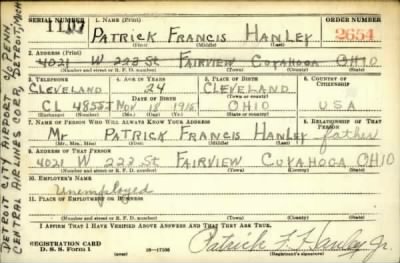 SERIAL NUMBER
1. NAME (Print)
ORDER NUMBER
1107
PATRICK FRANCIS HANLEY
2654
(First) (Middle) (Last)
2. ADDRESS (Print)
4021 W 222 St FAIRVIEW CUYAHOGA OHIO
(Number and street or R. F. D. number) (Town) (County) (State)
3. TELEPHONE
4. AGE IN YEARS
5. PLACE OF BIRTH
6. COUNTRY OF CITIZENSHIP
CLEVELAND 24 CLEVELAND
(Town or county)
DATE OF BIRTH
CL Nov 18 1915 OHIO USA
(Mo.) (Day) (Yr.) (State or country)
7. NAME OF PERSON WHO WILL ALWAYS KNOW YOUR ADDRESS
8. RELATIONSHIP OF THAT PERSON
Mr PATRICK FRANCIS HANLEY father
(Mr., Mrs., Miss) (First) (Middle) (Last)
9. ADDRESS OF THAT PERSON
4021 W 222 St FAIRVIEW CUYAHOGA OHIO
(Number and street or R. F. D. number) (Town) (County) (State)
10. EMPLOYER'S NAME
Unemployed
11. PLACE OF EMPLOYMENT OR BUSINESS
(Number and street or R. F. D. number) (Town) (County) (State)
I AFFIRM THAT I HAVE VERIFIED ABOVE ANSWERS AND THAT THEY ARE TRUE.
REGISTRATION CARD
D. S. S. Form 1
Patrick F. Hanley Jr.
(Registrant's signature)
DETROIT CITY AIRPORT % PENN.
CENTRAL AIRLINES CORP, DETROIT, MICH